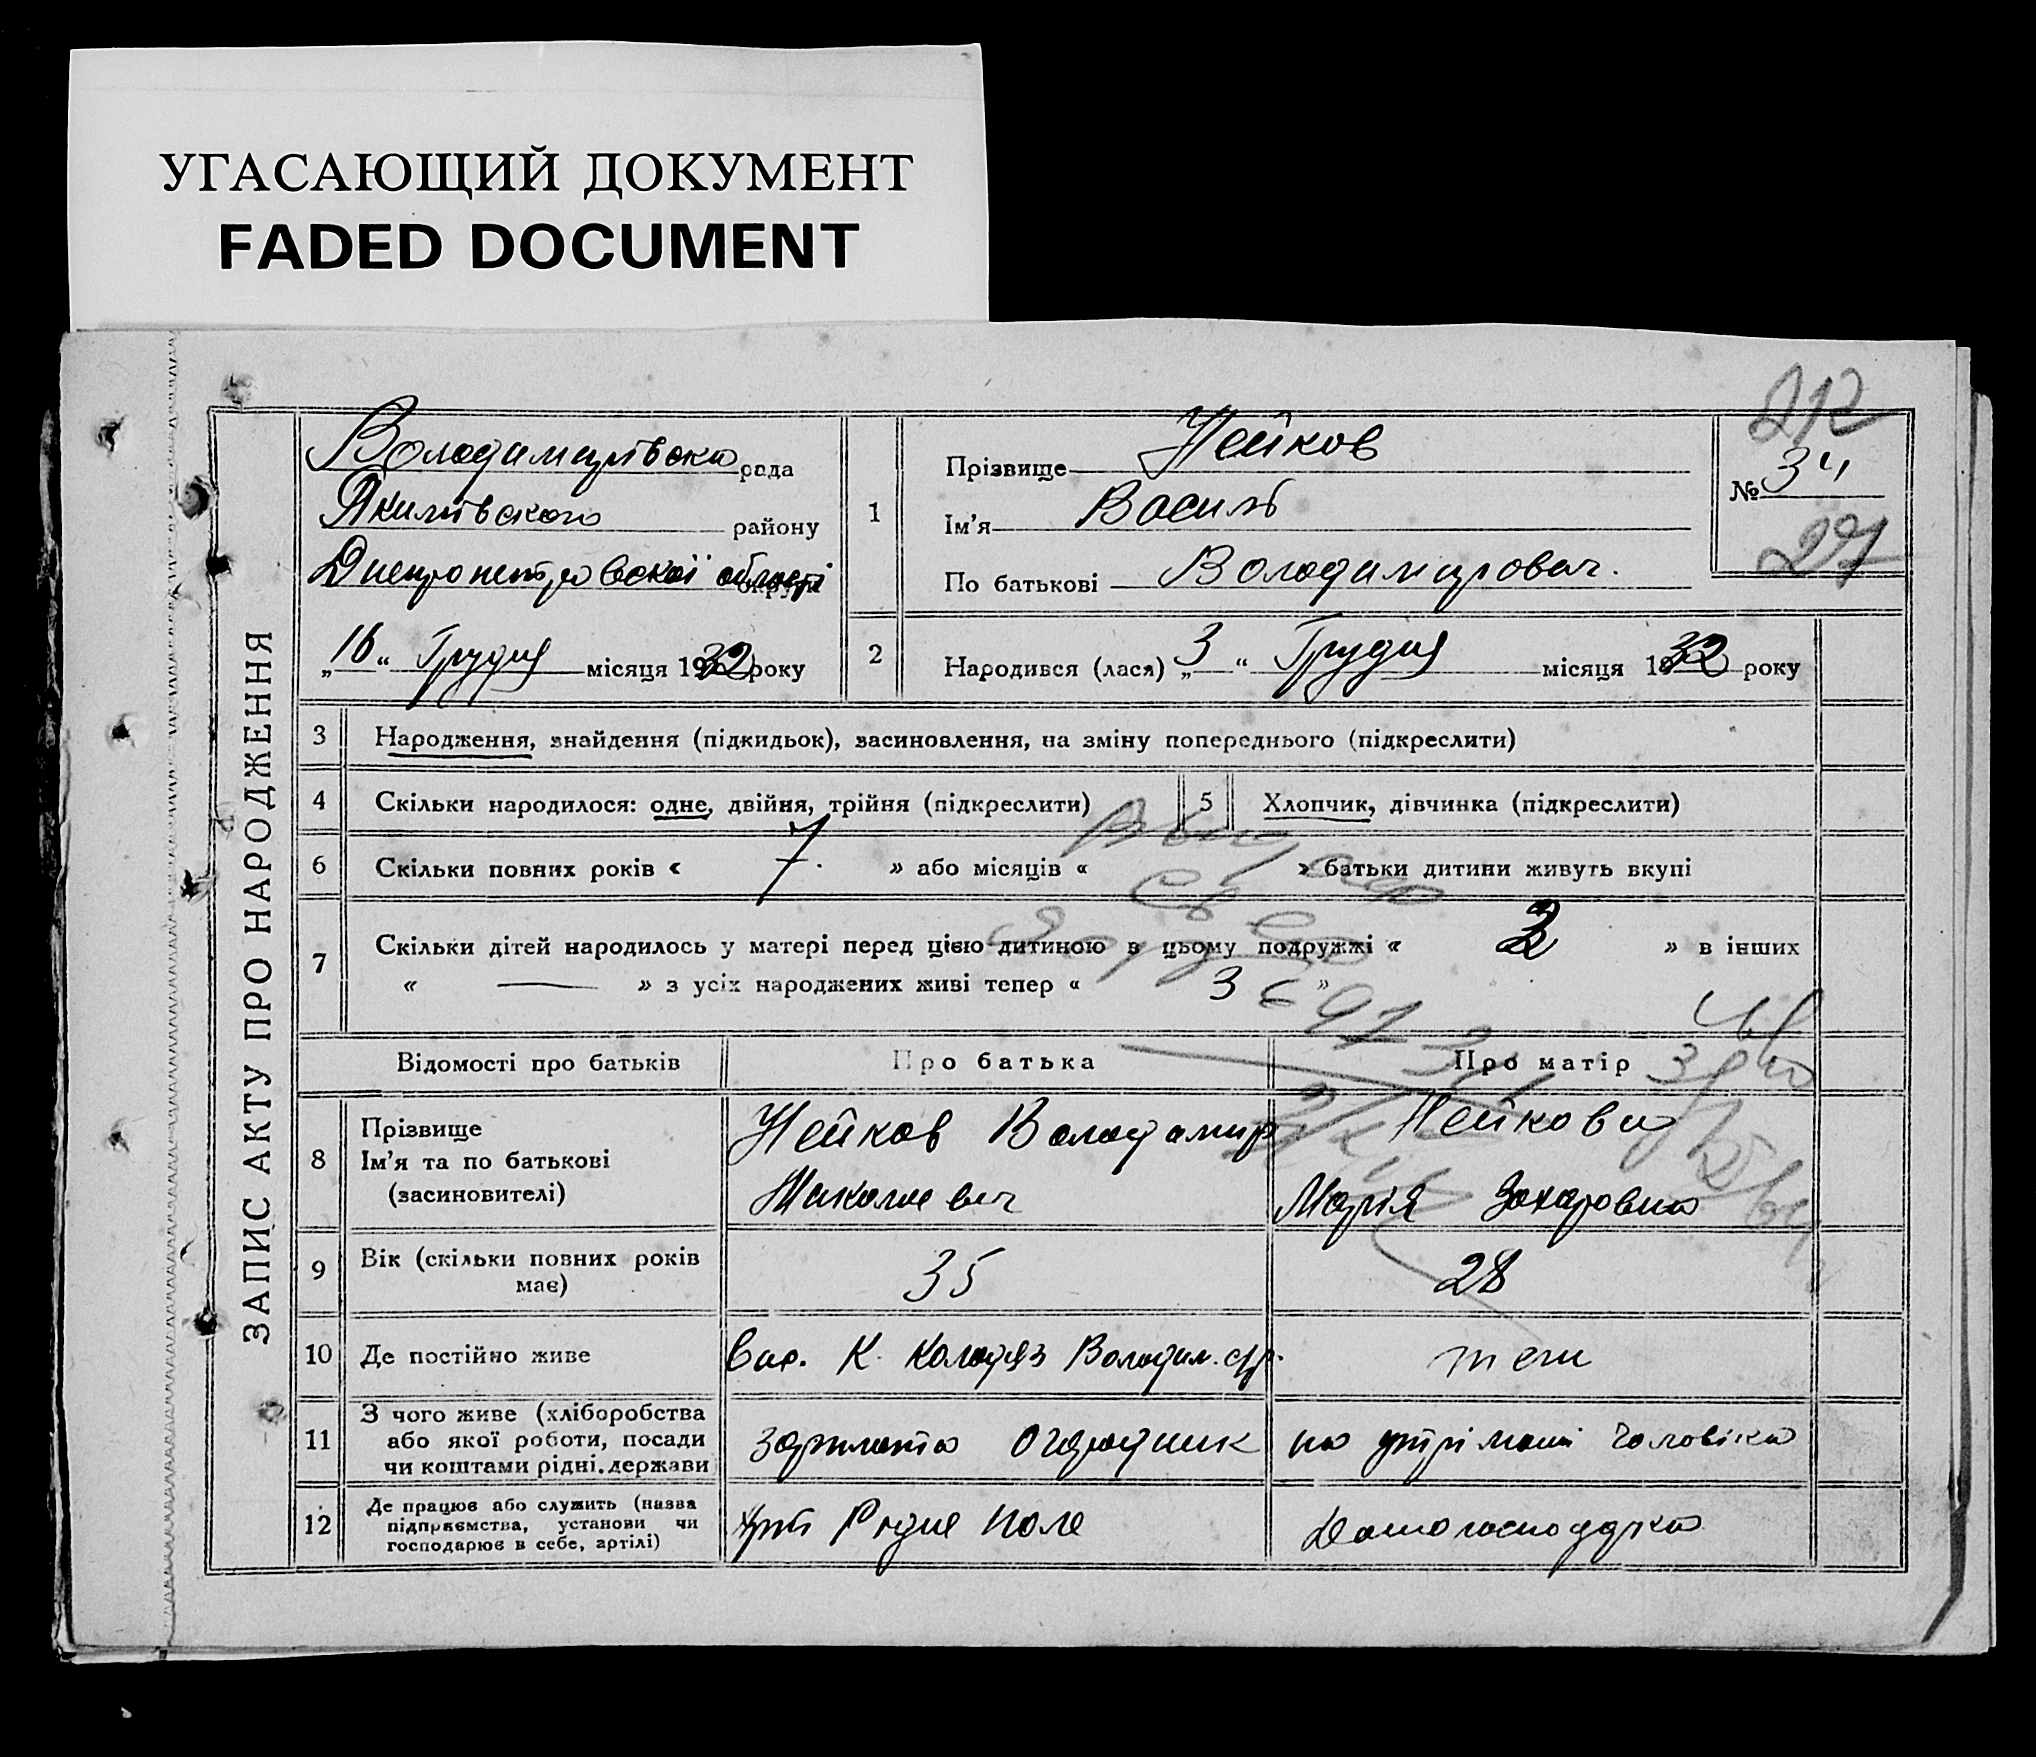 УГАСАЮЩИЙ ДОКУМЕНТ
FADED DOCUMENT
ЗАПИС АКТУ ПРО НАРОДЖЕННЯ
Володимирівска рада
Якимівского району
Днепропетровскої області округи
„16“ Грудня місяця 1932 року
212
№ 34
27
1
Прізвище Нейков
Ім'я Василь
По батькові Володимирович.
2
Народився (лася) „3“ Грудня місяця 1932 року
3 Народження, знайдення (підкидьок), засиновлення, на зміну попереднього (підкреслити)
4 Скільки народилося: одне, двійня, трійня (підкреслити)
5 Хлопчик, дівчинка (підкреслити)
6 Скільки повних років « 7. » або місяців « » батьки дитини живуть вкупі
7 Скільки дітей народилось у матері перед цією дитиною в цьому подружжі « 3 » в інших
« — » з усіх народжених живі тепер « 3 »
Відомості про батьків Про батька Про матір
8 Прізвище
Ім'я та по батькові
(засиновителі)
Нейков Володимир
Миколаевич
Нейкова
Марія Захаровна
9 Вік (скільки повних років
має)
35
28
10 Де постійно живе
Вис. К. Колодяз Володим. с/р.
теж
11 З чого живе (хліборобства
або якої роботи, посади
чи коштами рідні, держави
зарплата Огородник
на утрімані чоловіка
12 Де працює або служить (назва
підприємства, установи чи
господарює в себе, артілі)
Рідне Поле
Домогосподарка